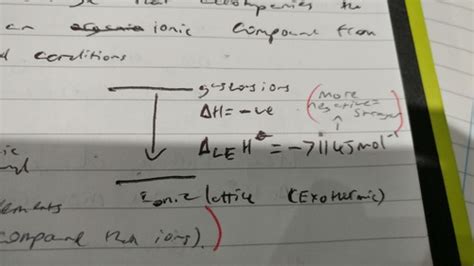 accompanies the
an ionic compound from
d conditions
gaseous ions
ΔH = -ve
(more
negative =
stronger
Δ LE H⦵ = -711 kJ mol⁻¹
Ionic lattice (Exothermic)
ements
compound than ions).